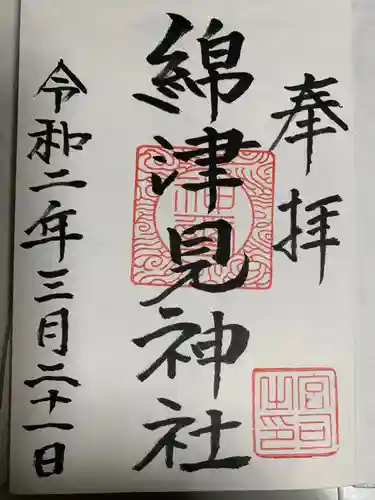 奉拝
綿津見神社
宮司之印
令和二年三月二十一日